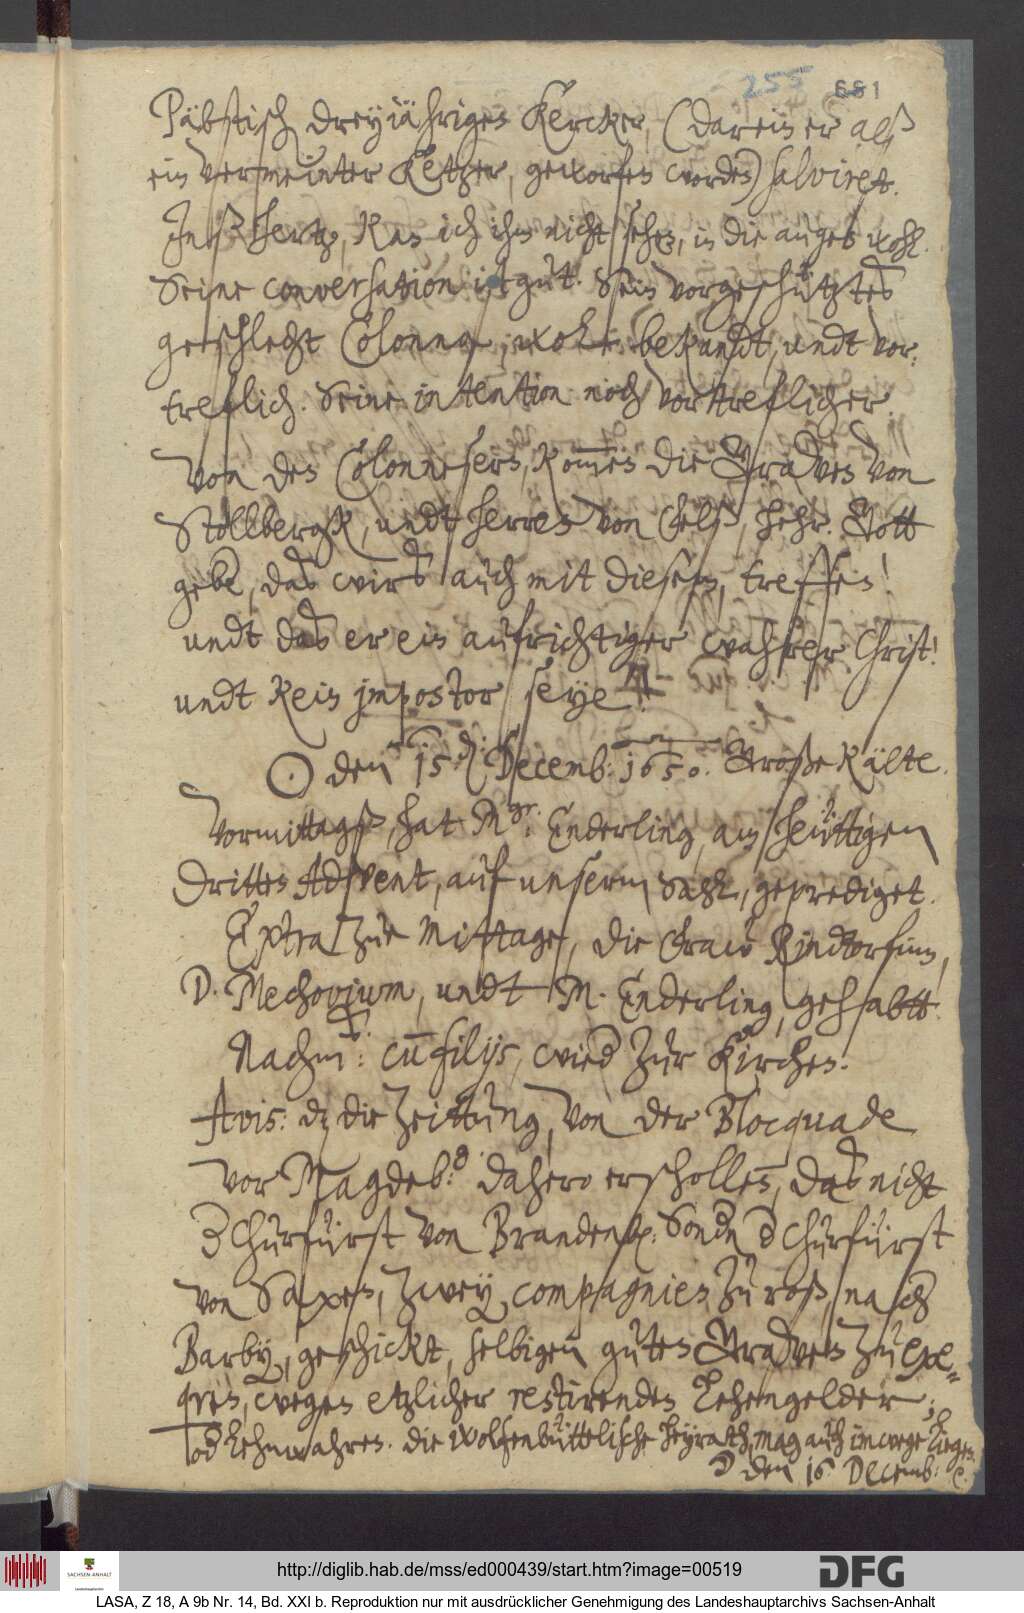 255 661
Päbstisch dreyiähriges Kercker, (darein er alß
ein vermeinter Ketzer, geworfen worden) salviret.
Inß hertz, kan ich ihm nicht sehen, in die augen wohl.
Seine conversation ist gut. Sein vorgeschütztes
geschlecht Colonna, wohl bekandt, undt vor-
treflich. Seine intention noch vortreflicher.
Von den Colonnesern, kom̄en die Graven von
Stollbergk, undt herren von Gelß, hehr. Gott
gebe, das wirs auch mit diesem, treffen!
undt das er ein aufrichtiger wahrer Christ!
undt kein impostor seye!
☉ den 15. Decemb: 1650. Große kälte.
Vormittagß, hat Mgr. Enderling, am heüttigen
dritten Advent, auf unserm Sahl, geprediget.
Extra zu Mittage, die Fraw Rindtorfinn,
D. Mechovium, undt M. Enderling, gehabtt.
Nachm: cum filiis, wied zur kirchen.
Avis: dz die Zeittung, von der Blocquade
vor Magdeb: dahero erschollen, das nicht
d Churfürst von Brandenb. Sondn d Churfürst
von Saxen, zwey compagnien zu roß, nach
Barby, geschickt, selbigen guten Graven zu exe-
qviren, wegen etzlicher restirenden Lehengelder,
od Lehnwahren. die Wolfenbüttelische heyrath, mag auch im wege liegen.
☽ den 16 Decemb:
http://diglib.hab.de/mss/ed000439/start.htm?image=00519
SACHSEN-ANHALT
DFG
LASA, Z 18, A 9b Nr. 14, Bd. XXI b. Reproduktion nur mit ausdrücklicher Genehmigung des Landeshauptarchivs Sachsen-Anhalt